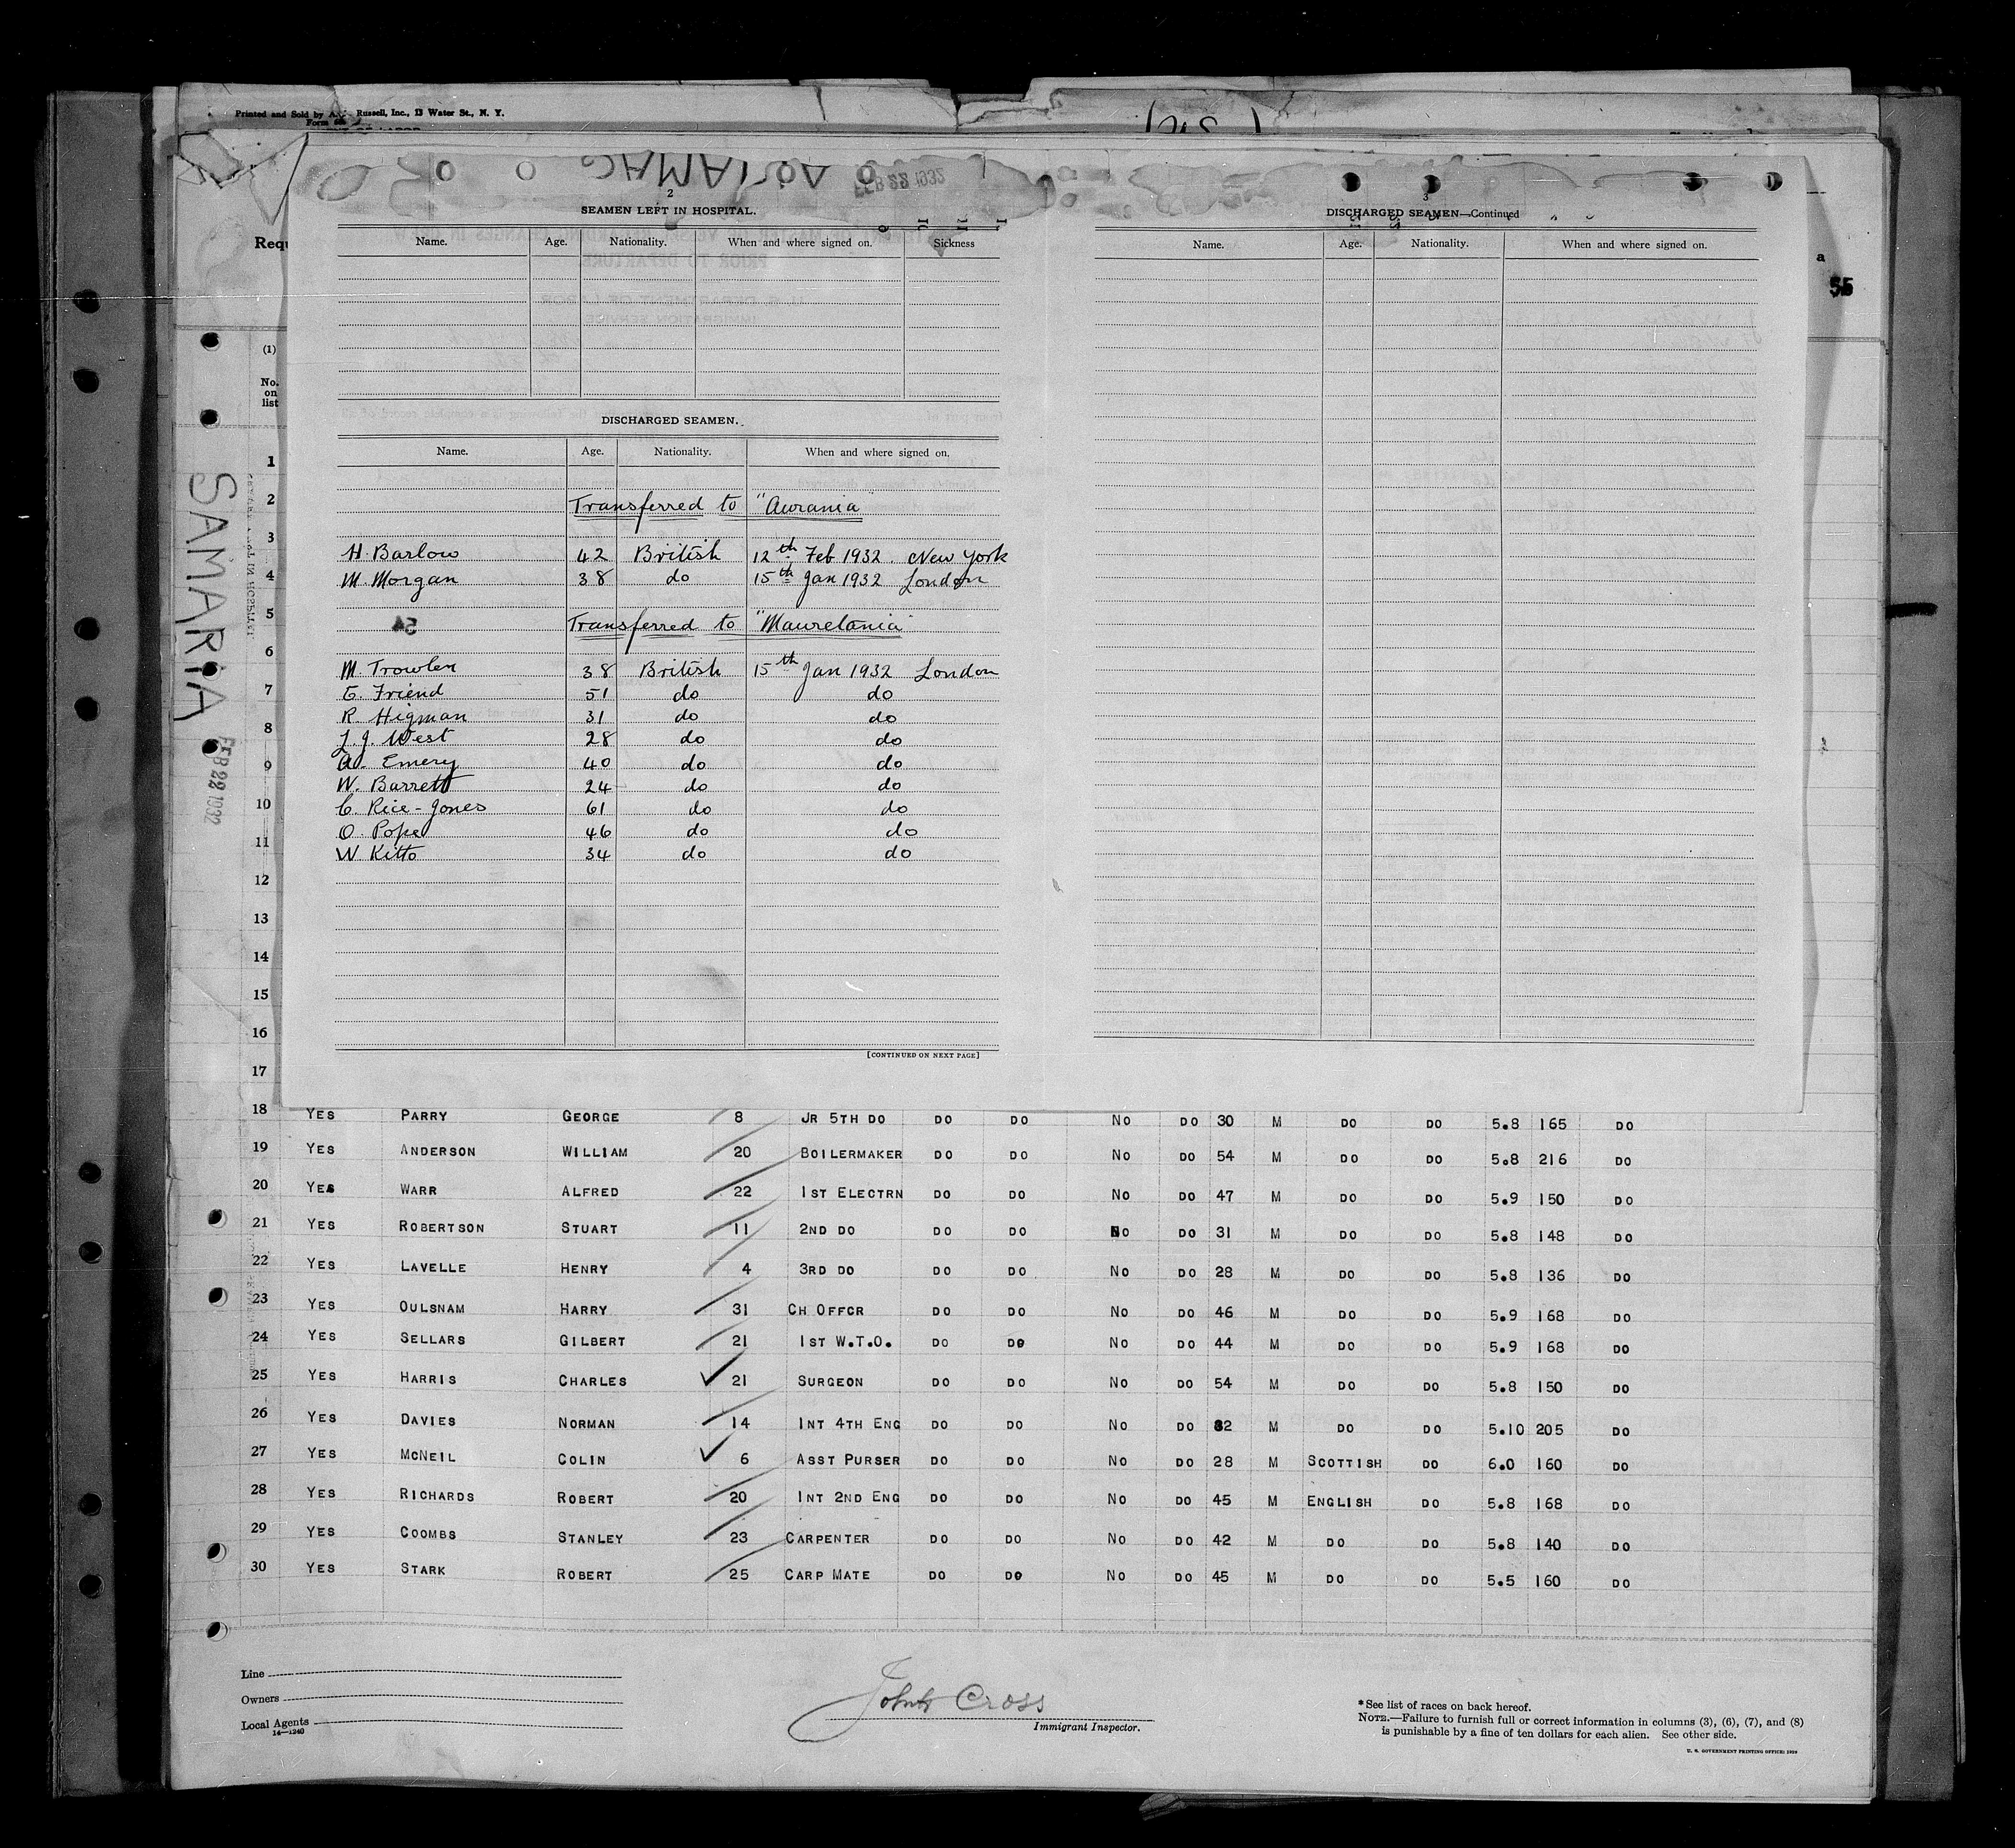 Printed and Sold by A. Russell, Inc., 13 Water St., N. Y.
SAMARIA
FEB 22 1932
Requ
(1)
No. on list
55
2
SEAMEN LEFT IN HOSPITAL.
Name. Age. Nationality. When and where signed on. Sickness
DISCHARGED SEAMEN.
Name. Age. Nationality. When and where signed on.
Transferred to "Aurania"
H. Barlow 42 British 12th Feb 1932. New York
M. Morgan 38 do 15th Jan 1932 London
54
Transferred to "Mauretania"
M. Trowlen 38 British 15th Jan 1932 London
E. Friend 51 do do
R. Higman 31 do do
J. J. West 28 do do
A. Emery 40 do do
W. Barrett 24 do do
C. Rice-Jones 61 do do
O. Pope 46 do do
W Kitto 34 do do
[CONTINUED ON NEXT PAGE]
3
DISCHARGED SEAMEN—Continued
Name. Age. Nationality. When and where signed on.
1
2
3
4
5
6
7
8
9
10
11
12
13
14
15
16
17
18 YES PARRY GEORGE 8 JR 5TH DO DO DO NO DO 30 M DO DO 5.8 165 DO
19 YES ANDERSON WILLIAM 20 BOILERMAKER DO DO NO DO 54 M DO DO 5.8 216 DO
20 YES WARR ALFRED 22 1ST ELECTRN DO DO NO DO 47 M DO DO 5.9 150 DO
21 YES ROBERTSON STUART 11 2ND DO DO DO NO DO 31 M DO DO 5.8 148 DO
22 YES LAVELLE HENRY 4 3RD DO DO DO NO DO 28 M DO DO 5.8 136 DO
23 YES OULSNAM HARRY 31 CH OFFCR DO DO NO DO 46 M DO DO 5.9 168 DO
24 YES SELLARS GILBERT 21 1ST W.T.O. DO DO NO DO 44 M DO DO 5.9 168 DO
25 YES HARRIS CHARLES 21 SURGEON DO DO NO DO 54 M DO DO 5.8 150 DO
26 YES DAVIES NORMAN 14 INT 4TH ENG DO DO NO DO 32 M DO DO 5.10 205 DO
27 YES MCNEIL COLIN 6 ASST PURSER DO DO NO DO 28 M SCOTTISH DO 6.0 160 DO
28 YES RICHARDS ROBERT 20 INT 2ND ENG DO DO NO DO 45 M ENGLISH DO 5.8 168 DO
29 YES COOMBS STANLEY 23 CARPENTER DO DO NO DO 42 M DO DO 5.8 140 DO
30 YES STARK ROBERT 25 CARP MATE DO DO NO DO 45 M DO DO 5.5 160 DO
Line
Owners
Local Agents
14—1240
John Cross
Immigrant Inspector.
*See list of races on back hereof.
NOTE.—Failure to furnish full or correct information in columns (3), (6), (7), and (8)
is punishable by a fine of ten dollars for each alien. See other side.
U. S. GOVERNMENT PRINTING OFFICE: 1929